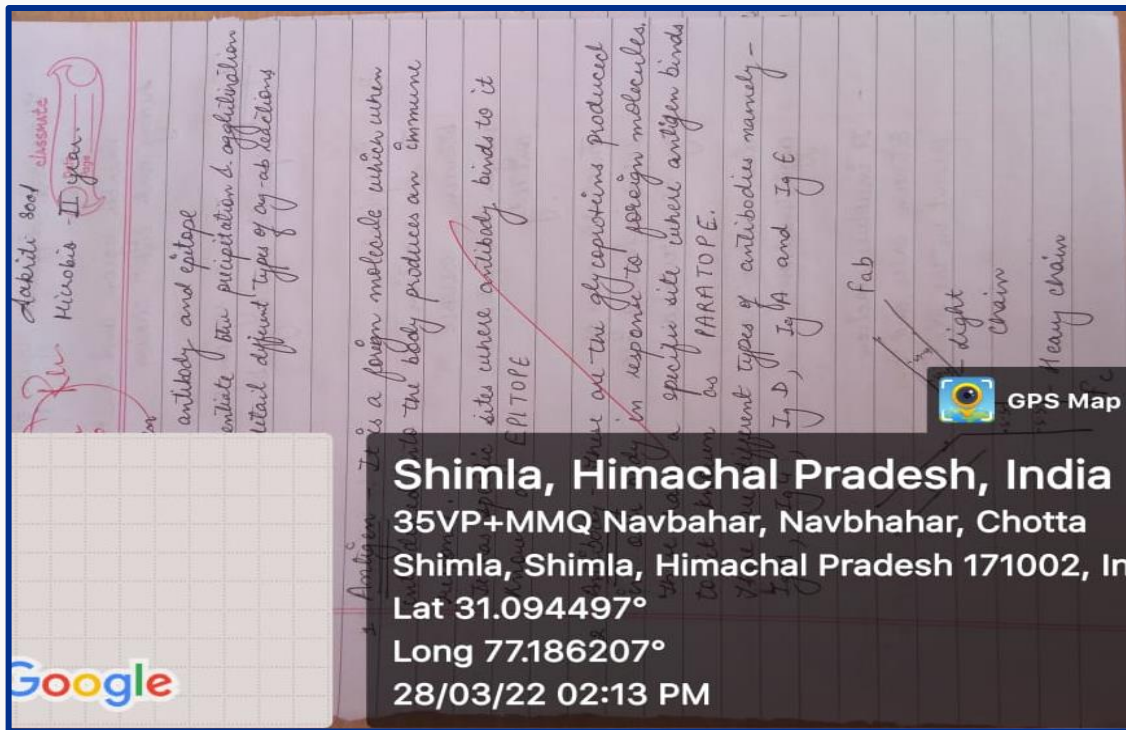 Aakriti Sood
Microbio - II year.
classmate
antibody and epitope
entiate btw precipitation & agglutination
detail different types of ag-ab reactions
1 Antigen - It is a foreign molecule which when
into the body produces an immune
specific sites where antibody binds to it
EPITOPE
2 Antibody - These are the glycoproteins produced
in our body in response to foreign molecules.
a specific site where antigen binds
to it known as PARATOPE.
different types of antibodies namely -
Ig D, Ig A and Ig E
Fab
Light
chain
Heavy chain
GPS Map
Shimla, Himachal Pradesh, India
35VP+MMQ Navbahar, Navbhahar, Chotta
Shimla, Shimla, Himachal Pradesh 171002, In
Lat 31.094497°
Long 77.186207°
28/03/22 02:13 PM
Google